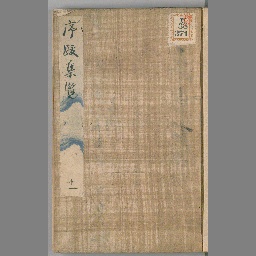 序跋集覧
十一